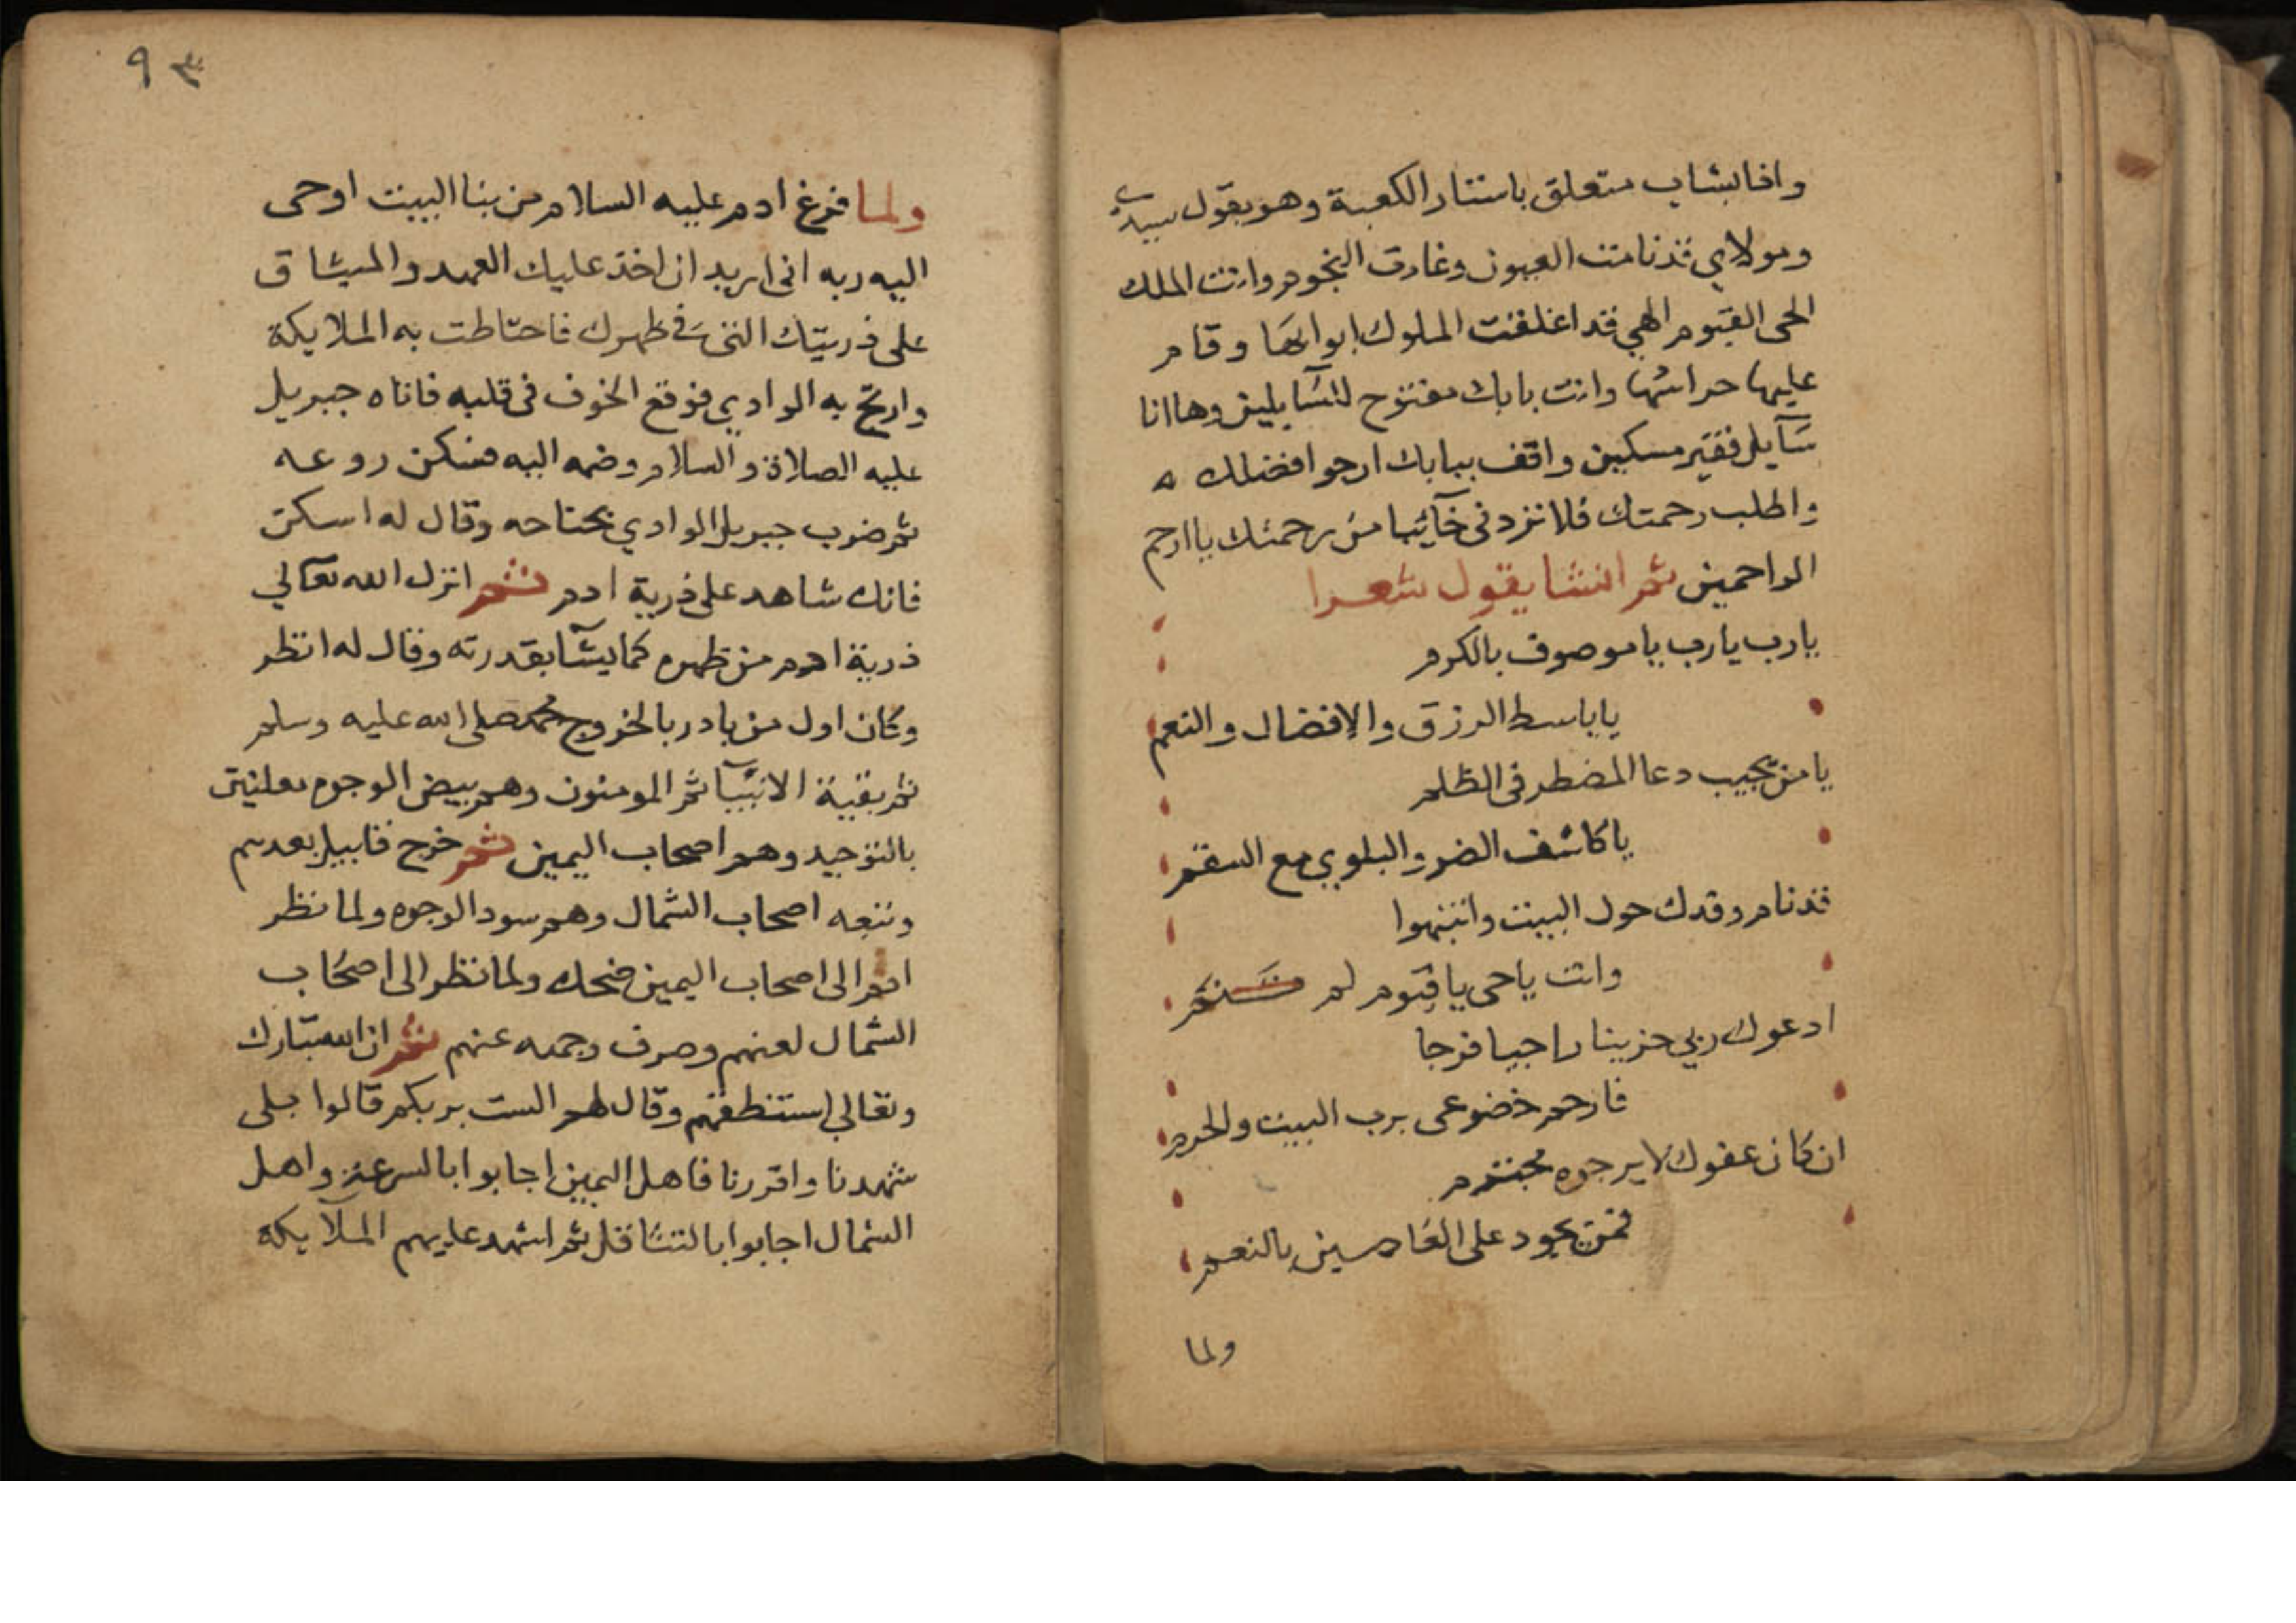 واذا بشاب متعلق باستار الكعبة وهو يقول سيدي
ومولاي قد نامت العيون وغارت النجوم وانت الملك
الحى القيوم الهي قد اغلقت الملوك ابوابها وقام
عليها حراسها وانت بابك مفتوح للسآيلين وها انا
سآيل فقير مسكين واقف ببابك ارجوا فضلك ه
واطلب رحمتك فلا تردنى خآئبا من رحمتك يا ارحم
الراحمين ثم انشا يقول شعرا
يارب يارب يا موصوف بالكرم
يا باسط الرزق والافضال والنعم
يا من يجيب دعا المضطر فى الظلم
يا كاشف الضر والبلوي مع السقم
قد نام وفدك حول البيت وانتبهوا
وانت يا حى يا قيوم لم تنم
ادعوك ربي حزينا راجيا فرجا
فارحم خضوعى برب البيت والحرم
ان كان عفوك لا يرجوه مجترم
فمن يجود على العاصين بالنعم
ولما
٩٣
ولما فرغ ادم عليه السلام من بنا البيت اوحى
اليه ربه انى اريد ان اخذ عليك العهد والميثاق
على ذريتك التى فى ظهرك فاحتاطت به الملايكة
وارتج به الوادي فوقع الخوف فى قلبه فاتاه جبريل
عليه الصلاة والسلام وضمه اليه فسكن روعه
ثم ضرب جبريل الوادي بجناحه وقال له اسكن
فانك شاهد على ذرية ادم ثم انزل الله تعالي
ذرية ادم من ظهره كما يشآ بقدرته وقال له انظر
وكان اول من بادر بالخروج محمد صلى الله عليه وسلم
ثم بقية الانبيآ ثم المومنون وهم بيض الوجوه معلنين
بالتوحيد وهم اصحاب اليمين ثم خرج قابيل بعدهم
وتبعه اصحاب الشمال وهم سود الوجوه ولما نظر
ادم الى اصحاب اليمين ضحك ولما نظر الى اصحاب
الشمال لعنهم وصرف وجهه عنهم ثم ان الله تبارك
وتعالي استنطقهم وقال لهم الست بربكم قالوا بلى
شهدنا واقررنا فاهل اليمين اجابوا بالسرعة واهل
الشمال اجابوا بالتثاقل ثم اشهد عليهم الملآيكة